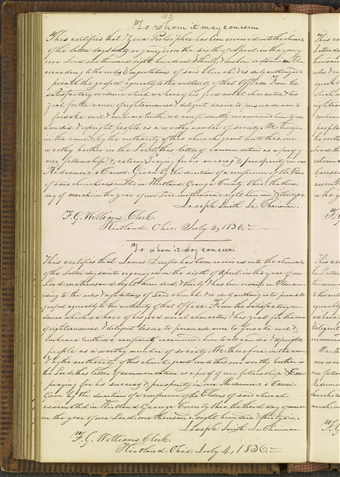 To whom it may concern
This certifies that Zera Pulsipher has been received into the church
of the Latter day Saints organized on the sixth of April in the year of
our Lord one thousand eight hundred & thirty & has been ordained an Elder
according to the rules & regulations of said church & is duly authorized to
preach the gospel agreeably to the authority of that office. From the
satisfactory evidence which we have of his good moral character & his
zeal for the cause of righteousness & diligent desire to persuade men to
forsake evil & embrace truth, we confidently recommend him to all
candid & upright people as a worthy member of society. We therefore
in the name & by the authority of this church grant unto this our
worthy brother in the Lord this letter of commendation as a proof of
our fellowship & esteem praying for his success & prosperity in our
Redeemer's cause. Given by the direction of a conference of the Elders
of said church assembled in Kirtland Geauga County Ohio the third
day of March in the year of our Lord one thousand eight hundred & thirty six
Joseph Smith Jr Chairman
F. G. Williams Clerk
Kirtland Ohio. July 4, 1836
To whom it may concern
This certifies that James has been received into the church of
the Latter day Saints organized on the sixth of April in the year of our
Lord one thousand eight hundred & thirty & has been ordained an according
to the rules & regulations of said church & is duly authorized to preach the
gospel agreeably to the authority of that office. From the satisfactory evidence
which we have of his good moral character & his zeal for the cause
of righteousness & diligent desire to persuade men to forsake evil &
embrace truth we confidently recommend him to all candid & upright
people as a worthy member of society. We therefore in the name
& by the authority of this church grant unto this our worthy brother in
the Lord this letter of commendation as a proof of our fellowship & esteem
praying for his success & prosperity in our Redeemer's cause
Given by the direction of a conference of the Elders of said church
assembled in Kirtland Geauga County Ohio the third day of March
in the year of our Lord one thousand eight hundred & thirty six
Joseph Smith Jr Chairman
F. G. Williams Clerk
Kirtland Ohio, July 4, 1836